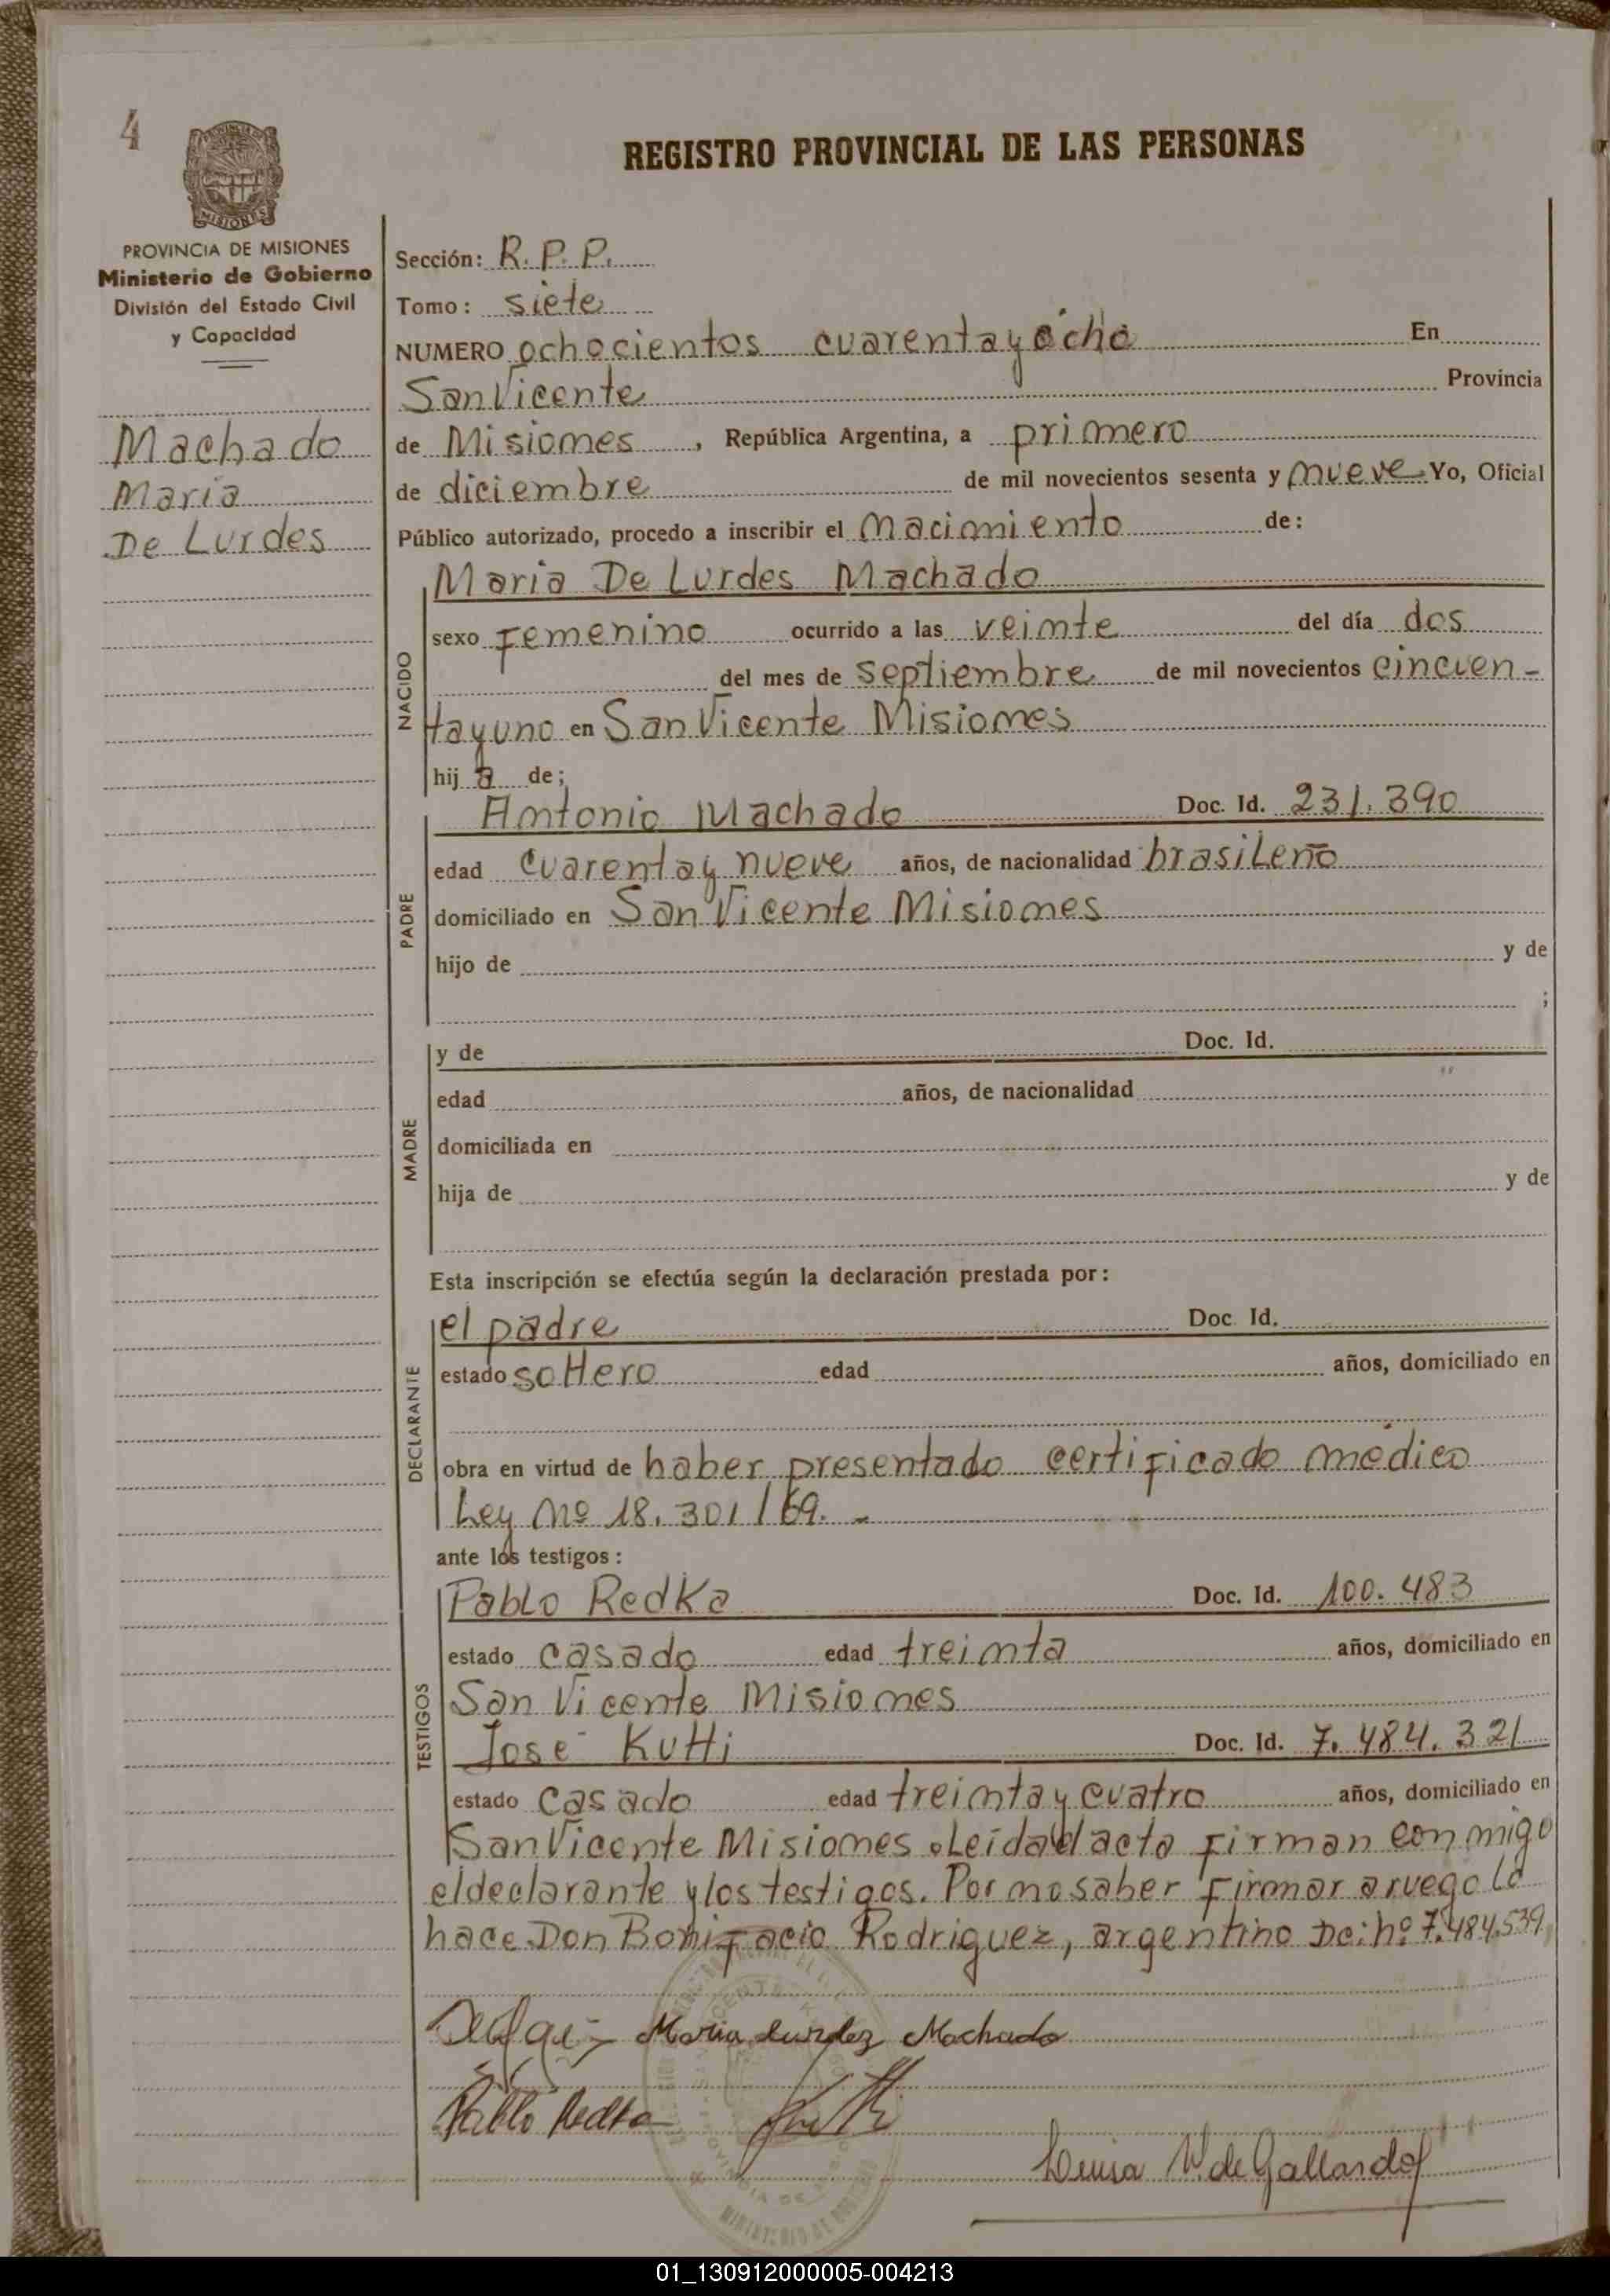 4
REGISTRO PROVINCIAL DE LAS PERSONAS
PROVINCIA DE MISIONES
Ministerio de Gobierno
División del Estado Civil
y Capacidad
Machado
Maria
De Lurdes
Sección: R. P. P.
Tomo: siete
NUMERO ochocientos cuarenta y ocho En
San Vicente Provincia
de Misiones, República Argentina, a primero
de diciembre de mil novecientos sesenta y nueve Yo, Oficial
Público autorizado, procedo a inscribir el nacimiento de:
NACIDO
Maria De Lurdes Machado
sexo Femenino ocurrido a las veinte del día dos
del mes de septiembre de mil novecientos cincuen-
tayuno en San Vicente Misiones
hij a de;
PADRE
Antonio Machado Doc. Id. 231.390
edad cuarenta y nueve años, de nacionalidad brasileño
domiciliado en San Vicente Misiones
hijo de y de
;
MADRE
y de Doc. Id.
edad años, de nacionalidad
domiciliada en
hija de y de
Esta inscripción se efectúa según la declaración prestada por:
DECLARANTE
el padre Doc Id.
estado soltero edad años, domiciliado en
obra en virtud de haber presentado certificado médico
Ley Nº 18.301/69.-
ante los testigos:
TESTIGOS
Pablo Redka Doc. Id. 100.483
estado casado edad treinta años, domiciliado en
San Vicente Misiones
José Kutti Doc. Id. 7.484.321
estado casado edad treinta y cuatro años, domiciliado en
San Vicente Misiones. Leída el acta firman conmigo
el declarante y los testigos. Por no saber firmar a ruego lo
hace Don Bonifacio Rodriguez, argentino Dc: nº 7.484.539
Maria Lurdez Machado
Pablo Redka
Luisa V. de Gallardo
01_130912000005-004213